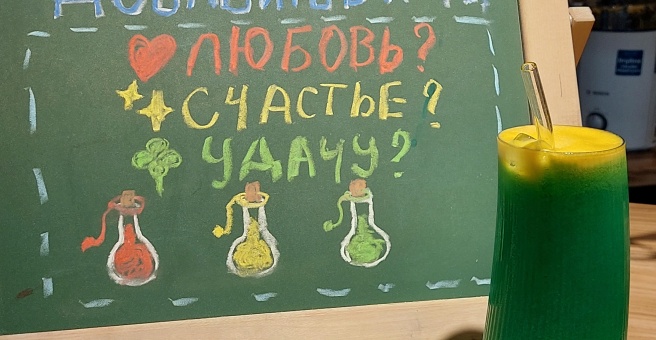 ЛЮБОВЬ?
СЧАСТЬЕ?
УДАЧУ?